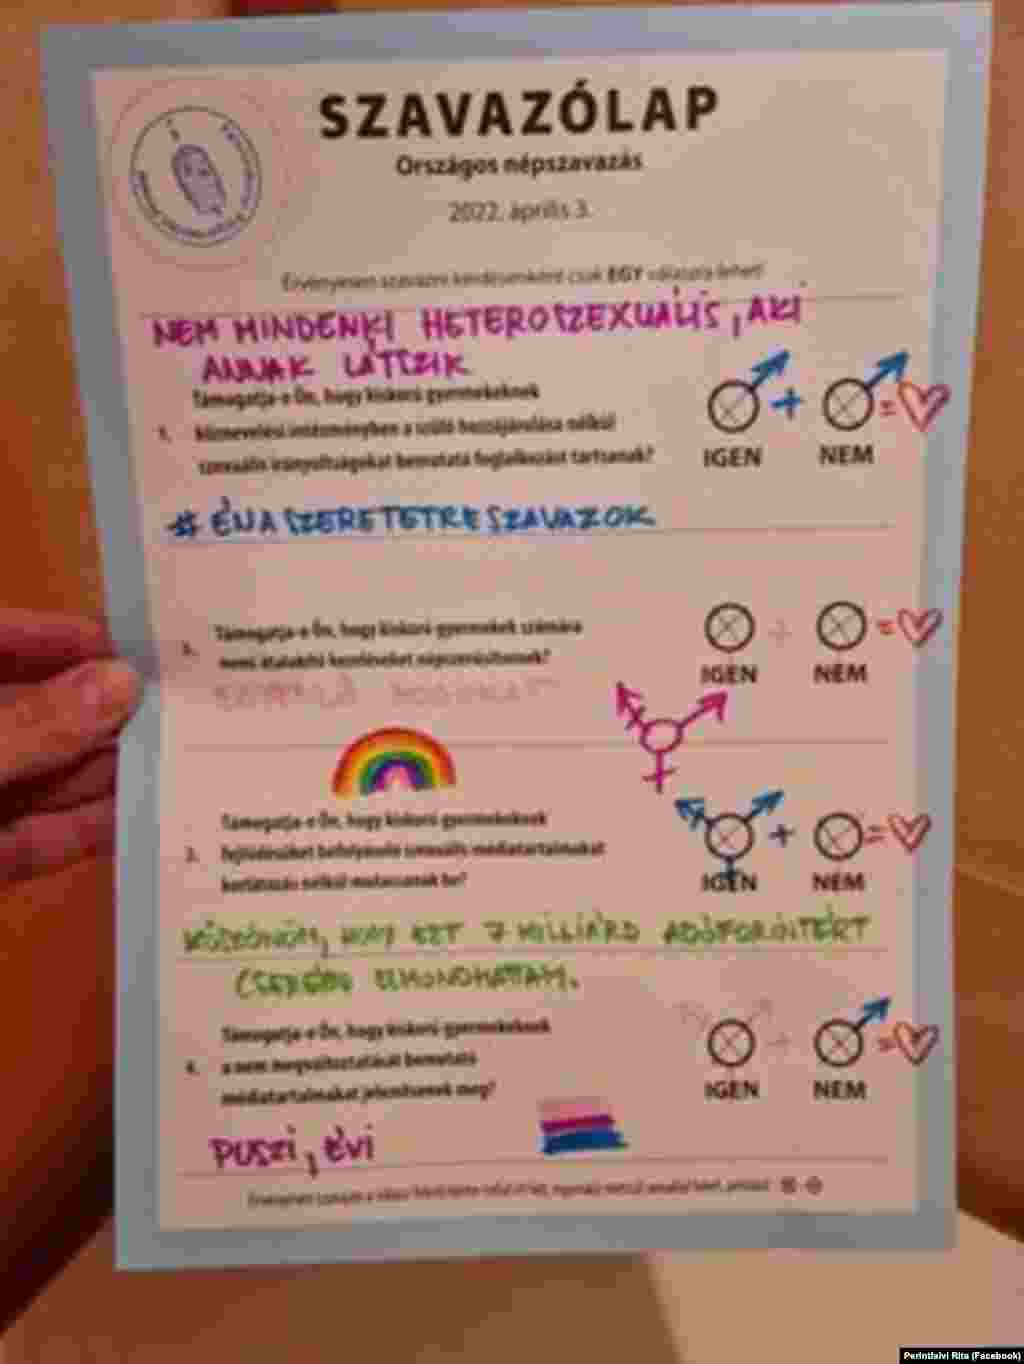 SZAVAZÓLAP
Országos népszavazás
2022. április 3.
Érvényesen szavazni kérdésenként csak EGY válaszra lehet!
NEM MINDENKI HETEROSZEXUÁLIS, AKI
ANNAK LÁTSZIK
Támogatja-e Ön, hogy kiskorú gyermekeknek
1. köznevelési intézményben a szülő hozzájárulása nélkül
szexuális irányultságokat bemutató foglalkozást tartsanak?
+ =
IGEN NEM
#ÉNASZERETETRESZAVAZOK
Támogatja-e Ön, hogy kiskorú gyermekek számára
nemi átalakító kezeléseket népszerűsítsenek?
+ =
IGEN NEM
Támogatja-e Ön, hogy kiskorú gyermekeknek
3. fejlődésüket befolyásoló szexuális médiatartalmakat
korlátozás nélkül mutassanak be?
+ =
IGEN NEM
KÖSZÖNÖM, HOGY EZT 7 MILLIÁRD ADÓFORINTÉRT
CSERÉBE ELMONDHATTAM.
Támogatja-e Ön, hogy kiskorú gyermekeknek
4. a nem megváltoztatását bemutató
médiatartalmakat jelenítsenek meg?
+ =
IGEN NEM
PUSZI, ÉVI
Perintfalvi Rita (Facebook)